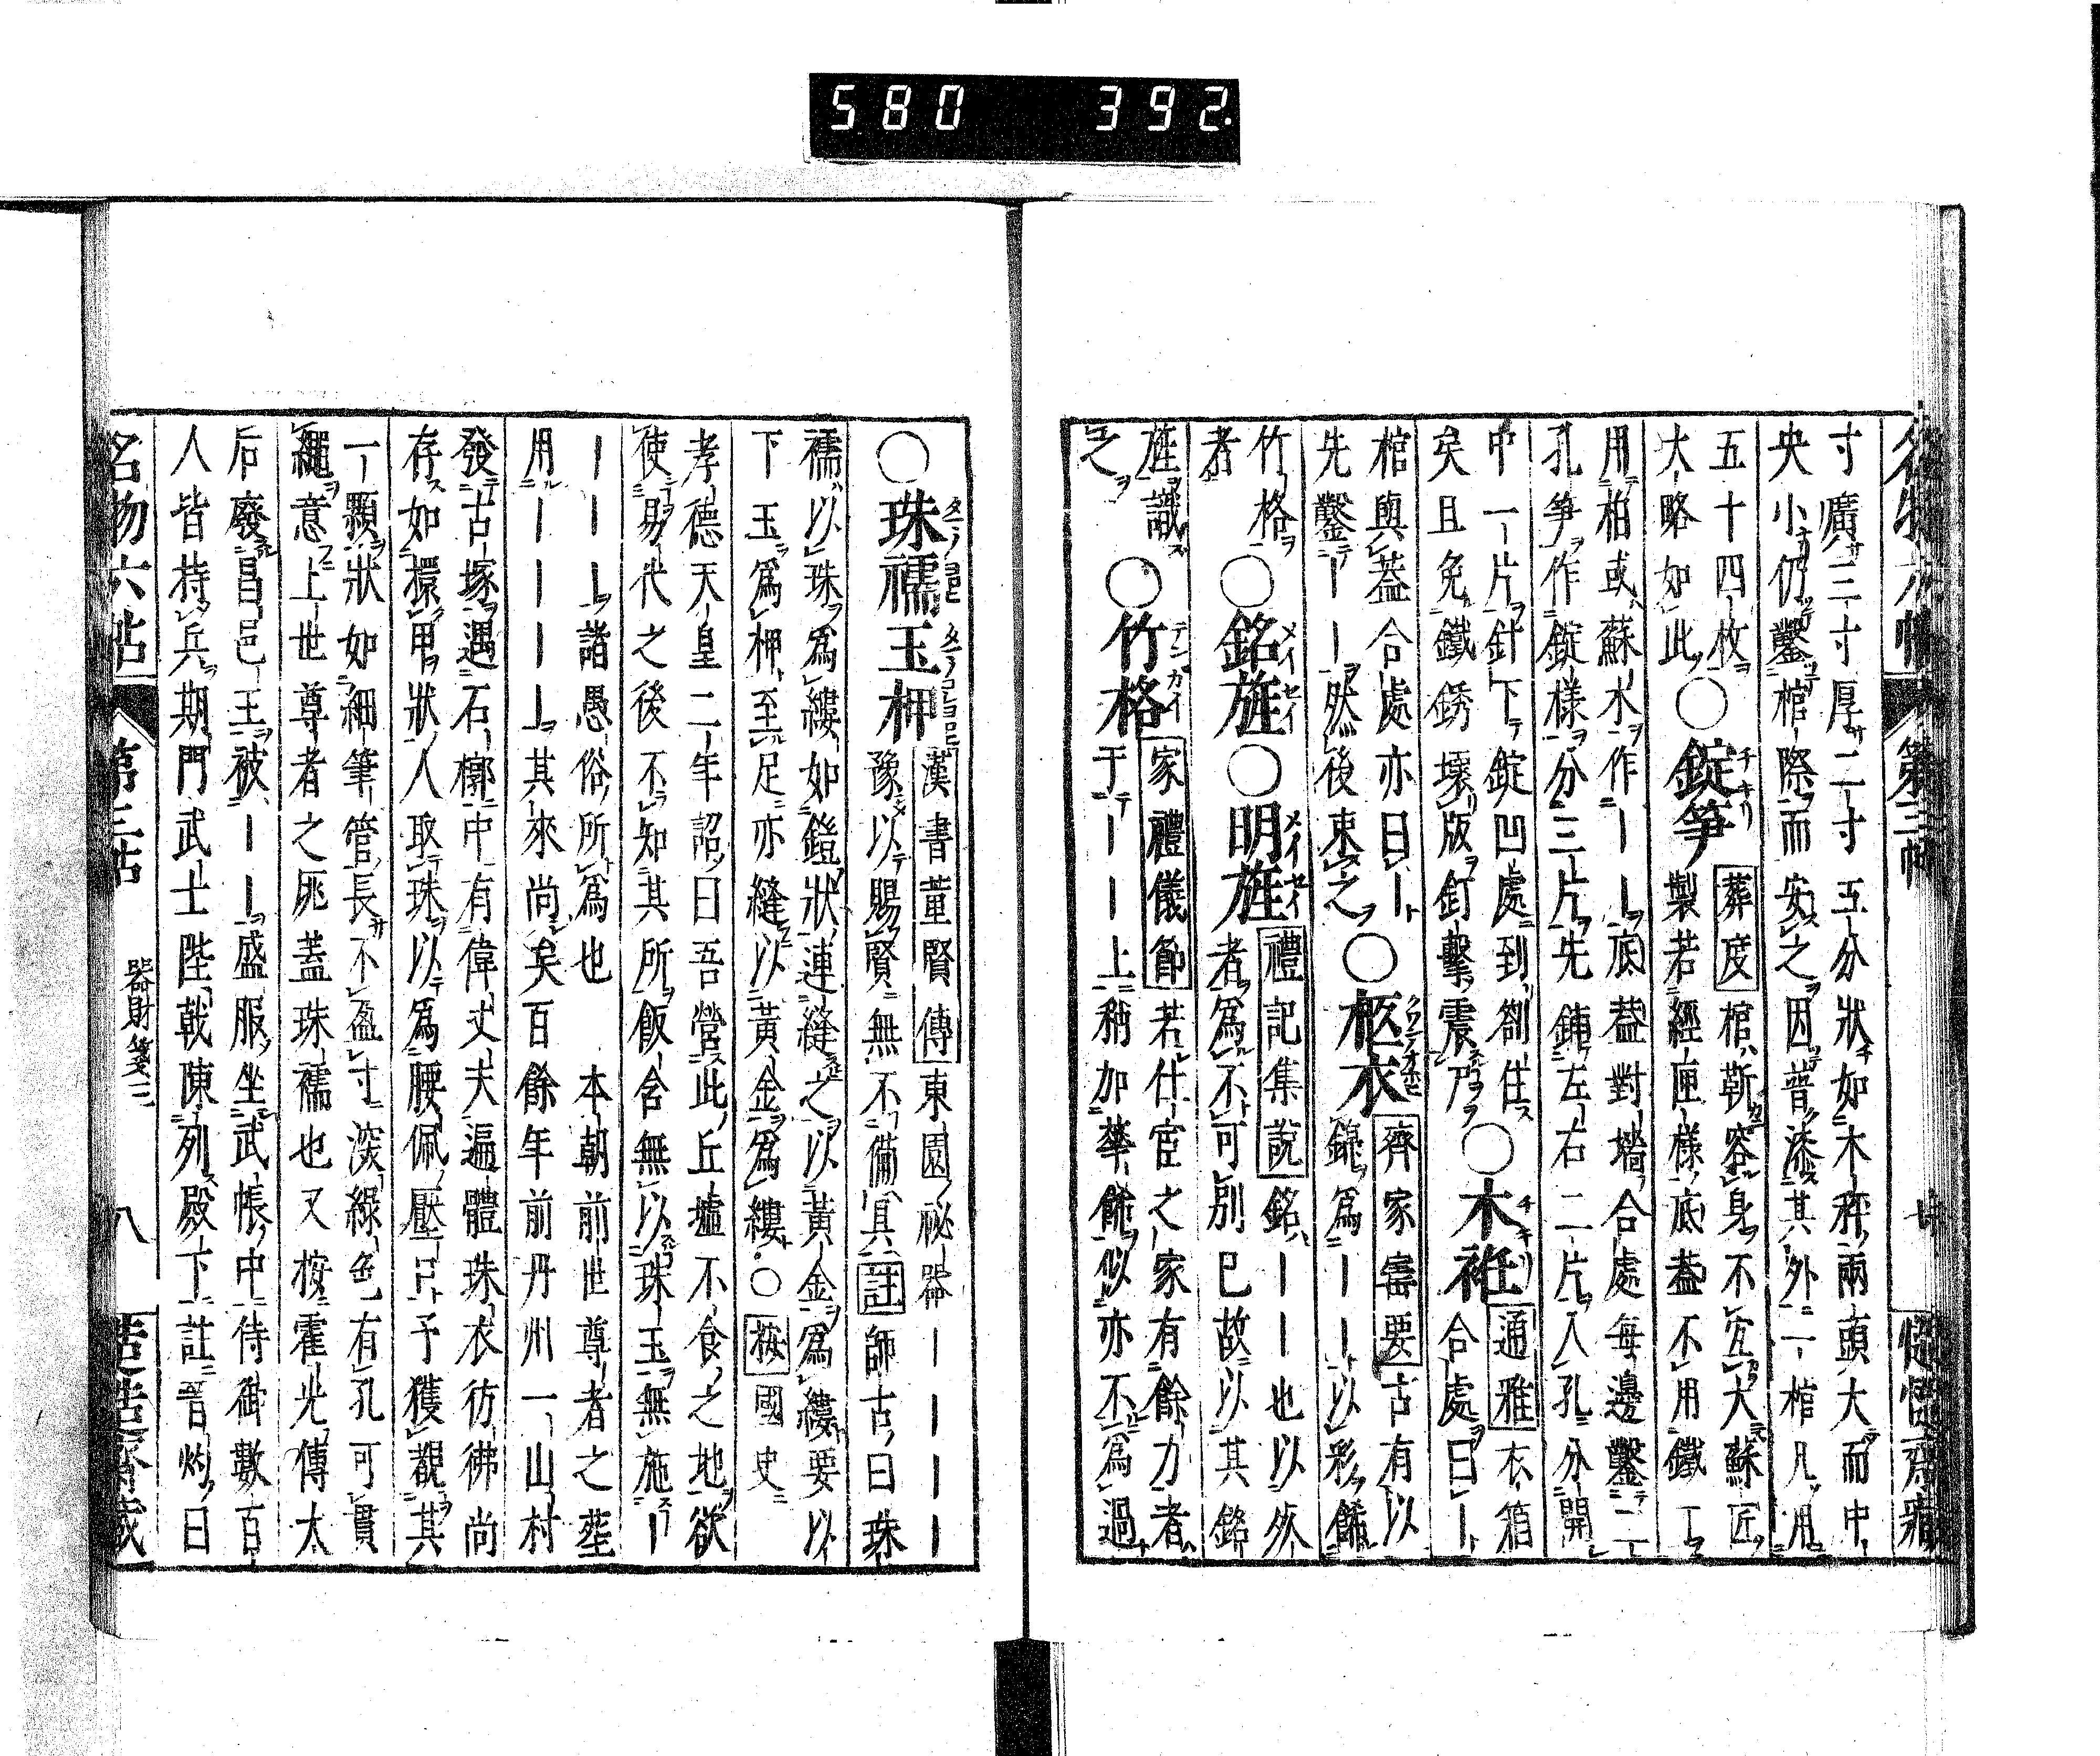 580 392.
名物六帖 第三帖 七 慥慥齋藏
寸廣三寸厚二寸五分狀如木秤兩頭大而中
央小仍鑿棺際而安之因普漆其外一棺凡用
五十四枚
大略如此
○錠笋
葬度 棺斬容身不宜大蘇匠
製若經匣樣底蓋不用鐵丁
用柏或蘇木作——底蓋對墻合處每邊鑿二
孔笋作錠樣分三片先鋪左右二片入孔分開
中一片針下錠凹處到劄住
矣且免鐵銹壞版釘擊震尸
○木衽
通雅 衣箱
合處曰—
棺與蓋合處亦曰—
先鑿——然後束之
○柩衣
齊家寶要 古有以
錦爲——以彩餙
竹格
者
○銘旌○明旌
禮記集說 銘——也以然
者爲不可別已故以其銘
旌識
之
○竹格
家禮儀節 若仕宦之家有餘力者
于———上稍加華餙似亦不爲過
○珠襦玉柙
漢書董賢傳 東園祕器————
豫以賜賢無不備具 註 師古曰珠
襦以珠爲縷如鎧狀連縫之以黃金爲縷要以
下玉爲柙至足亦縫以黃金爲縷○按國史
孝德天皇二年詔曰吾營此丘墟不食之地欲
使易代之後不知其所飯含無以珠玉無施—
———諸愚俗所爲也 本朝前世尊者之葬
用————其來尚矣百餘年前丹州一山村
發古塚遇石槨中有偉丈夫遍體珠衣彷彿尚
存如擐甲狀人取珠以爲腰佩壓口予獲覩其
一顆狀如細筆管長不盈寸深綠色有孔可貫
繩意上世尊者之 蓋珠襦也又按霍光傳太
后廢昌邑王被——盛服坐武帳中侍御數百
人皆持兵期門武士陛戟陳列殿下註晉灼曰
名物六帖 第三帖 器財箋三 八 慥慥齋藏